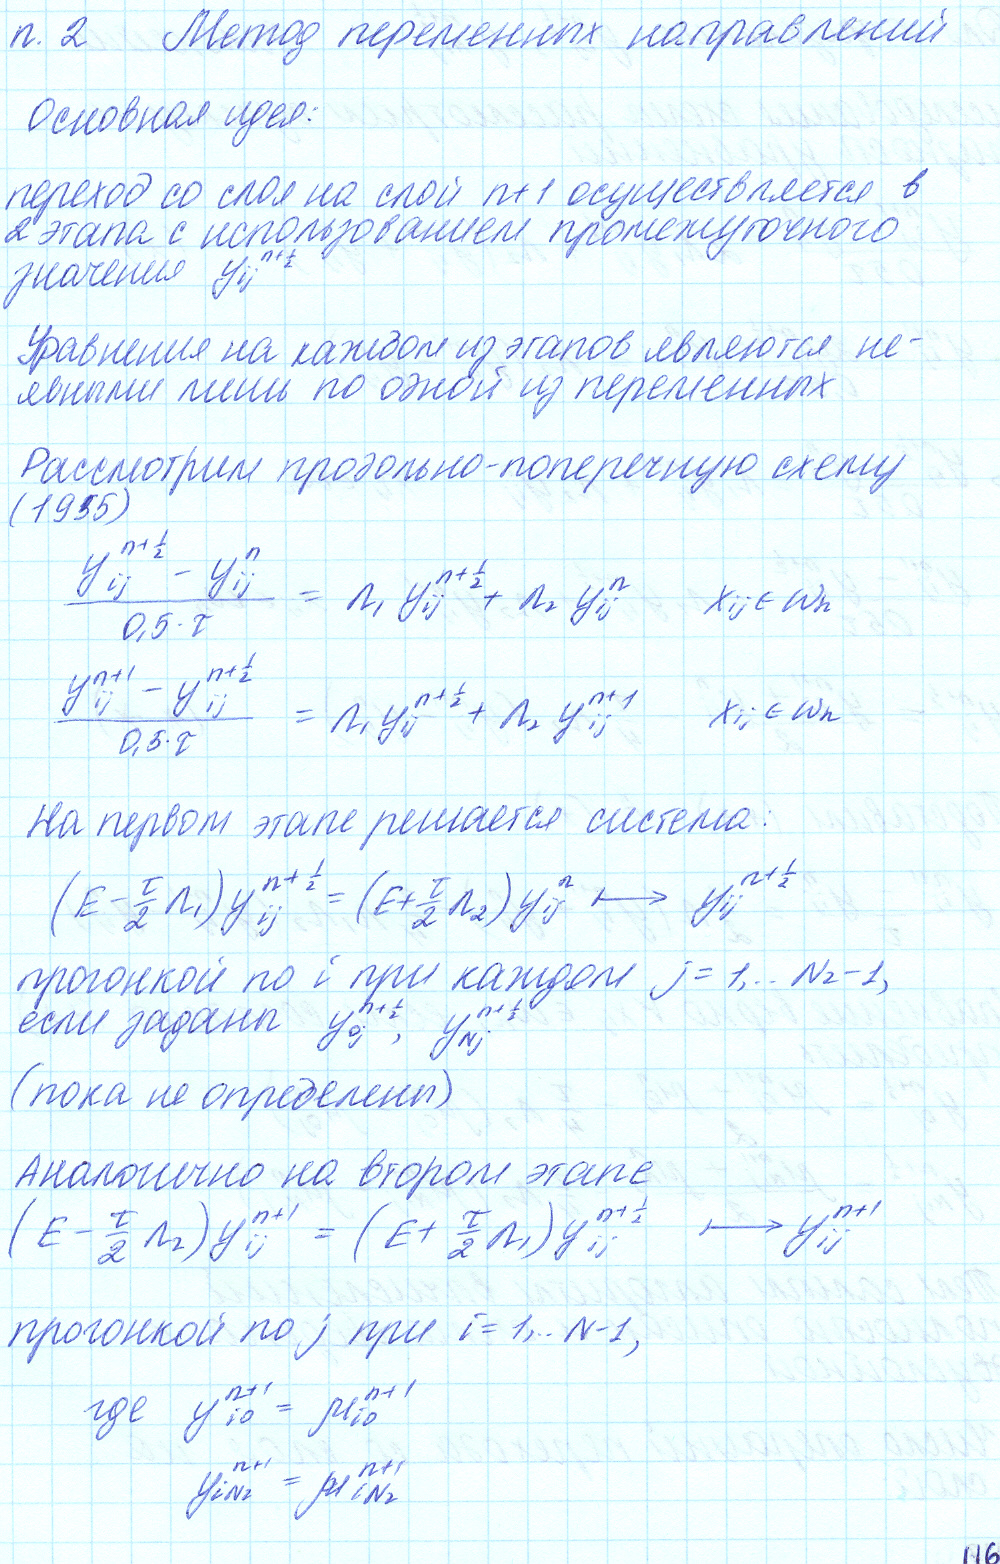 п. 2 Метод переменных направлений
Основная идея:
переход со слоя на слой n+1 осуществляется в
2 этапа с использованием промежуточного
значения y_{ij}^{n+1/2}
Уравнения на каждом из этапов являются не-
явными лишь по одной из переменных
Рассмотрим продольно-поперечную схему
(1955)
(y_{ij}^{n+1/2} - y_{ij}^{n}) / (0,5·τ) = Λ₁ y_{ij}^{n+1/2} + Λ₂ y_{ij}^{n} x_{ij} ∈ ω_h
(y_{ij}^{n+1} - y_{ij}^{n+1/2}) / (0,5·τ) = Λ₁ y_{ij}^{n+1/2} + Λ₂ y_{ij}^{n+1} x_{ij} ∈ ω_h
На первом этапе решается система:
(E - τ/2 Λ₁) y_{ij}^{n+1/2} = (E + τ/2 Λ₂) y_{ij}^{n} ↦ y_{ij}^{n+1/2}
прогонкой по i при каждом j = 1,.. N₂-1,
если заданы y_{0j}^{n+1/2}, y_{Nj}^{n+1/2}
(пока не определены)
Аналогично на втором этапе
(E - τ/2 Λ₂) y_{ij}^{n+1} = (E + τ/2 Λ₁) y_{ij}^{n+1/2} ↦ y_{ij}^{n+1}
прогонкой по j при i = 1,.. N-1,
где y_{i0}^{n+1} = μ_{i0}^{n+1}
y_{iN₂}^{n+1} = μ_{iN₂}^{n+1}